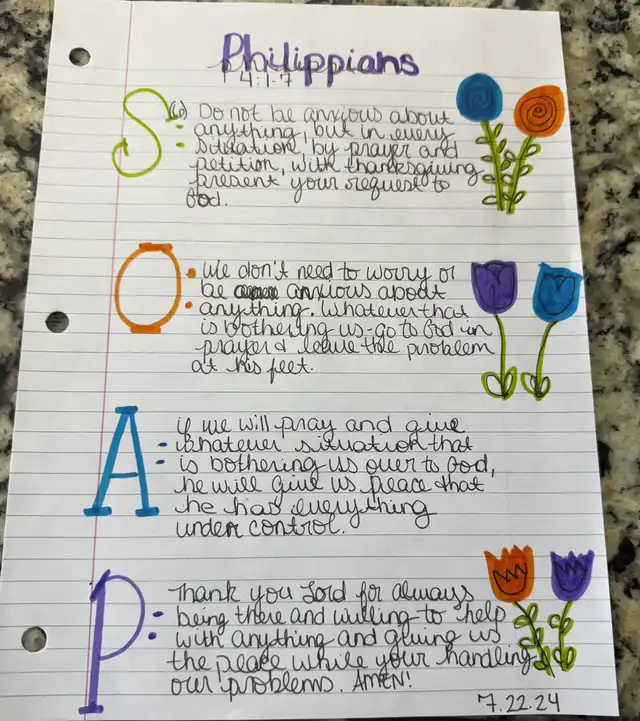 Philippians
4:1-7
S: (6) Do not be anxious about
anything, but in every
situation, by prayer and
petition, with thanksgiving
present your request to
God.
O: We don't need to worry or
be anxious about
anything. Whatever that
is bothering us-go to God in
prayer & leave the problem
at his feet.
A: if we will pray and give
whatever situation that
is bothering us over to God,
he will give us peace that
he has everything
under control.
P: Thank you Lord for always
being there and willing to help
with anything and giving us
the peace while your handling
our problems. AMEN!
7.22.24